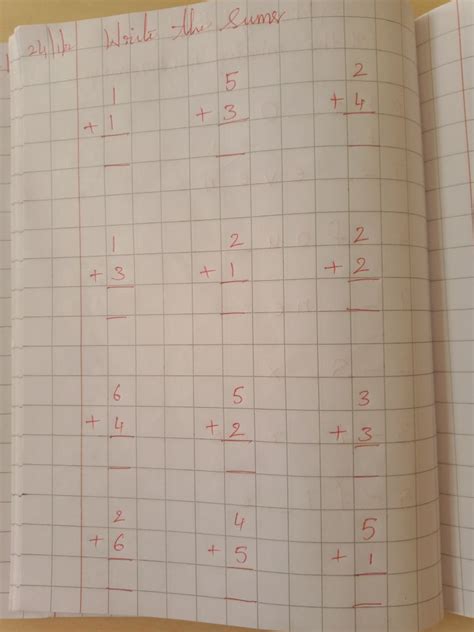 Write the Sums
1 5 2
+ 1 + 3 + 4
1 2 2
+ 3 + 1 + 2
6 5 3
+ 4 + 2 + 3
2 4 5
+ 6 + 5 + 1